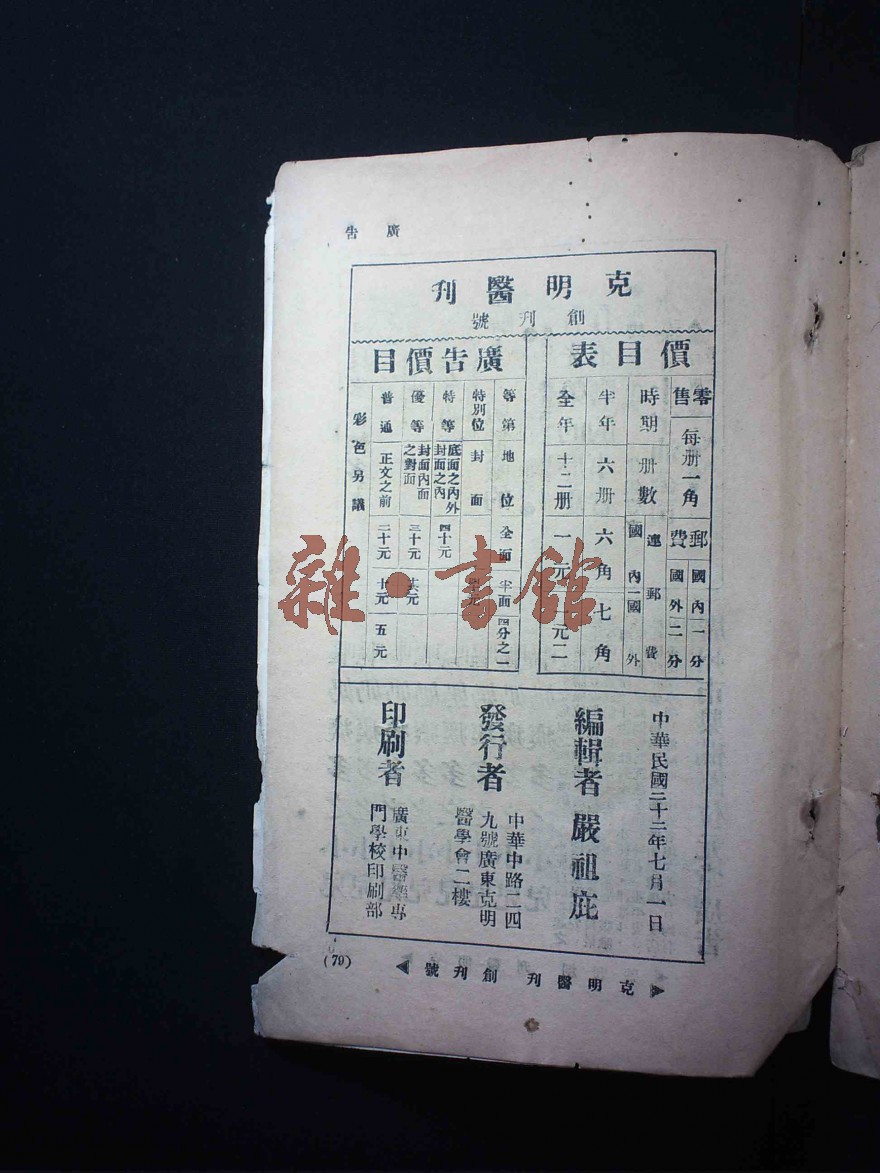 廣告
克明醫刊
創刊號
價目表
零售
每册一角
郵費
國內一分
國外二分
時期
册數
連郵費
國內
國外
半年
六册
六角
七角
全年
十二册
一元
一元二
廣告價目
等第
地位
全面
半面
四分之一
特別位
封面
特等
底面之內外
封面之內
四十元
優等
封面內面
之對面
三十元
普通
正文之前
二十元
十元
五元
彩色另議
中華民國二十二年七月一日
編輯者 嚴祖庇
發行者
中華中路二四
九號廣東克明
醫學會二樓
印刷者
廣東中醫藥專
門學校印刷部
克明醫刊 創刊號
(79)
雜·書館